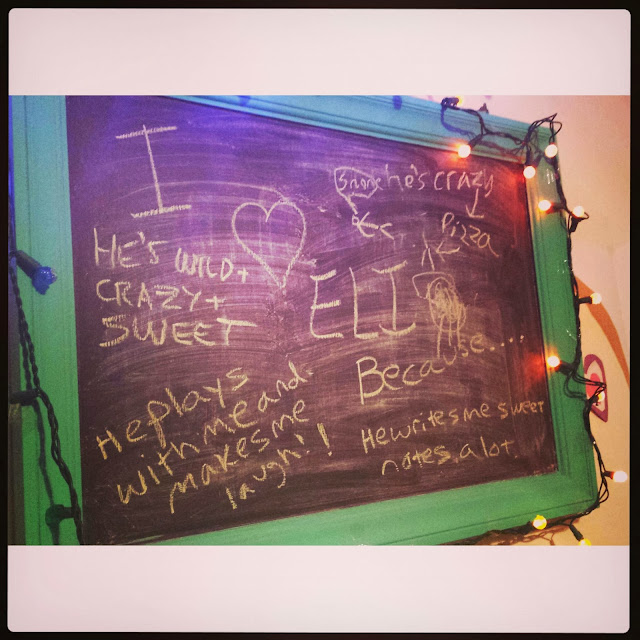 I
he's crazy
Pizza
ELI
HE'S WILD +
CRAZY +
SWEET
Because....
He plays
with me and
makes me
laugh!!
He writes me sweet
notes a lot